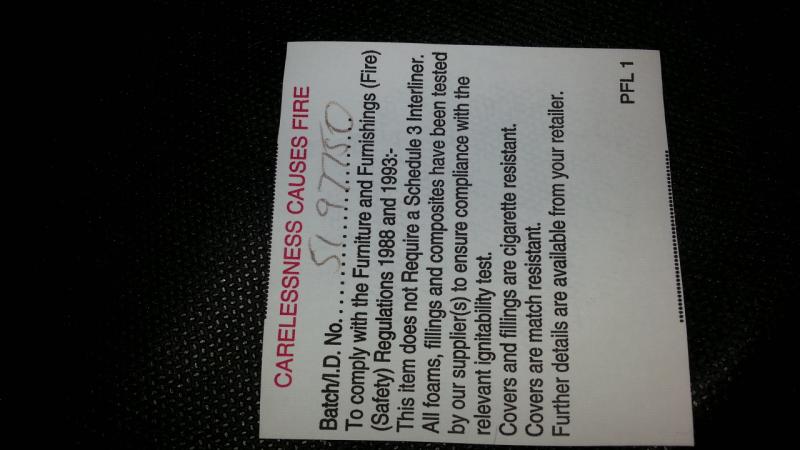 CARELESSNESS CAUSES FIRE
Batch/I.D. No. 5197750
To comply with the Furniture and Furnishings (Fire)
(Safety) Regulations 1988 and 1993:-
This item does not Require a Schedule 3 Interliner.
All foams, fillings and composites have been tested
by our supplier(s) to ensure compliance with the
relevant ignitability test.
Covers and fillings are cigarette resistant.
Covers are match resistant.
Further details are available from your retailer.
PFL 1